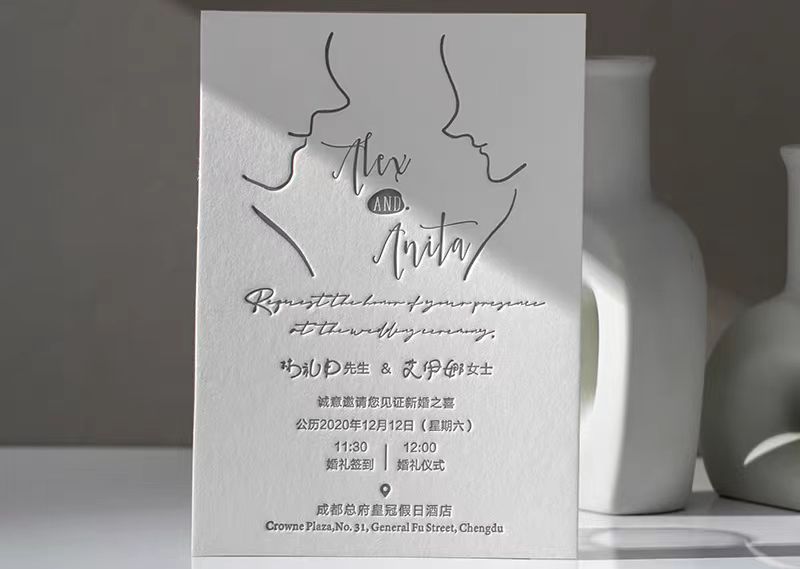 Alex
AND.
Anita
Request the honor of your presence
at the wedding ceremony.
先生 & 艾伊娜女士
诚意邀请您见证新婚之喜
公历2020年12月12日（星期六）
11:30 | 12:00
婚礼签到 | 婚礼仪式
成都总府皇冠假日酒店
Crowne Plaza,No. 31, General Fu Street, Chengdu